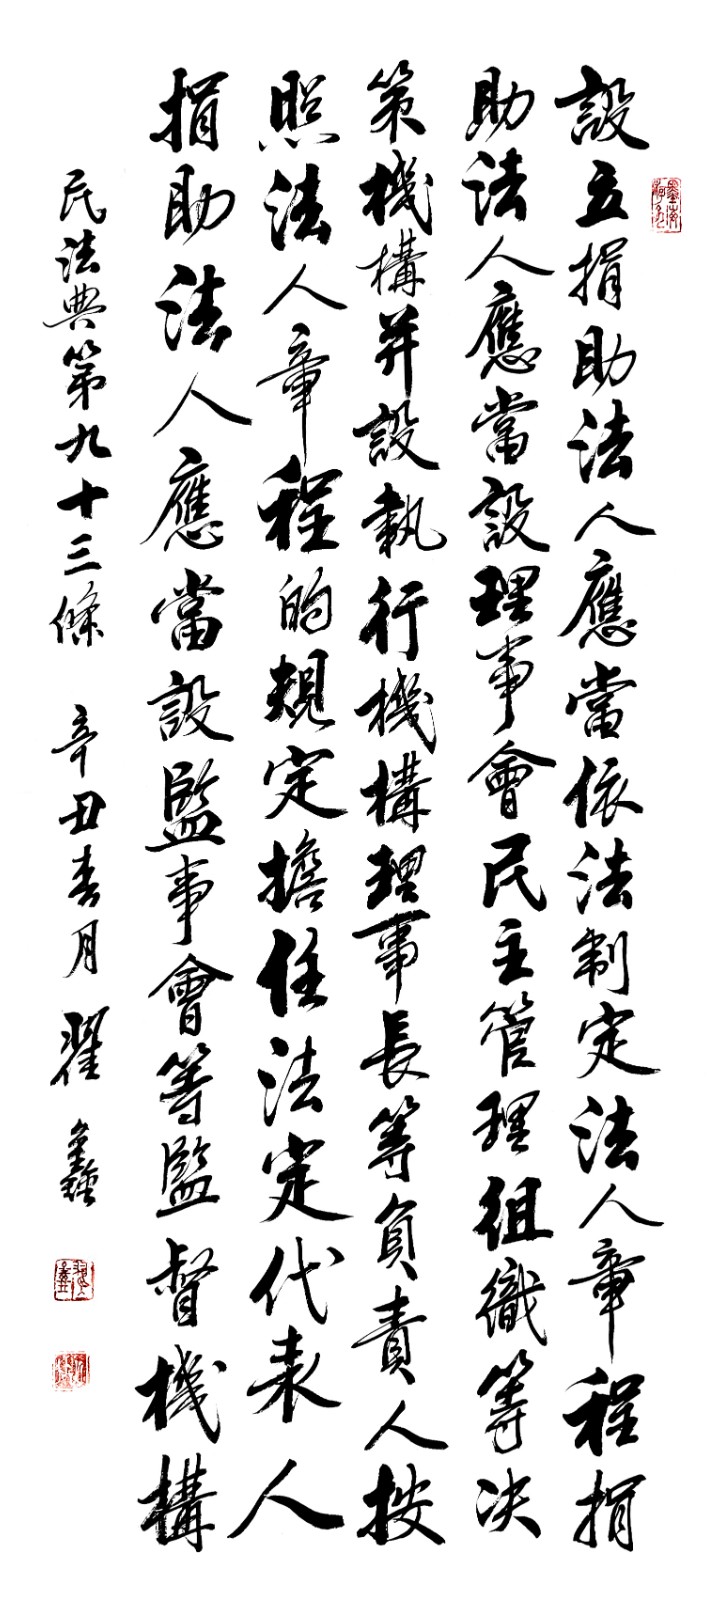 設立捐助法人應當依法制定法人章程捐
助法人應當設理事會民主管理組織等決
策機構并設執行機構理事長等負責人按
照法人章程的規定擔任法定代表人
捐助法人應當設監事會等監督機構
民法典第九十三條 辛丑春月 翟鑫